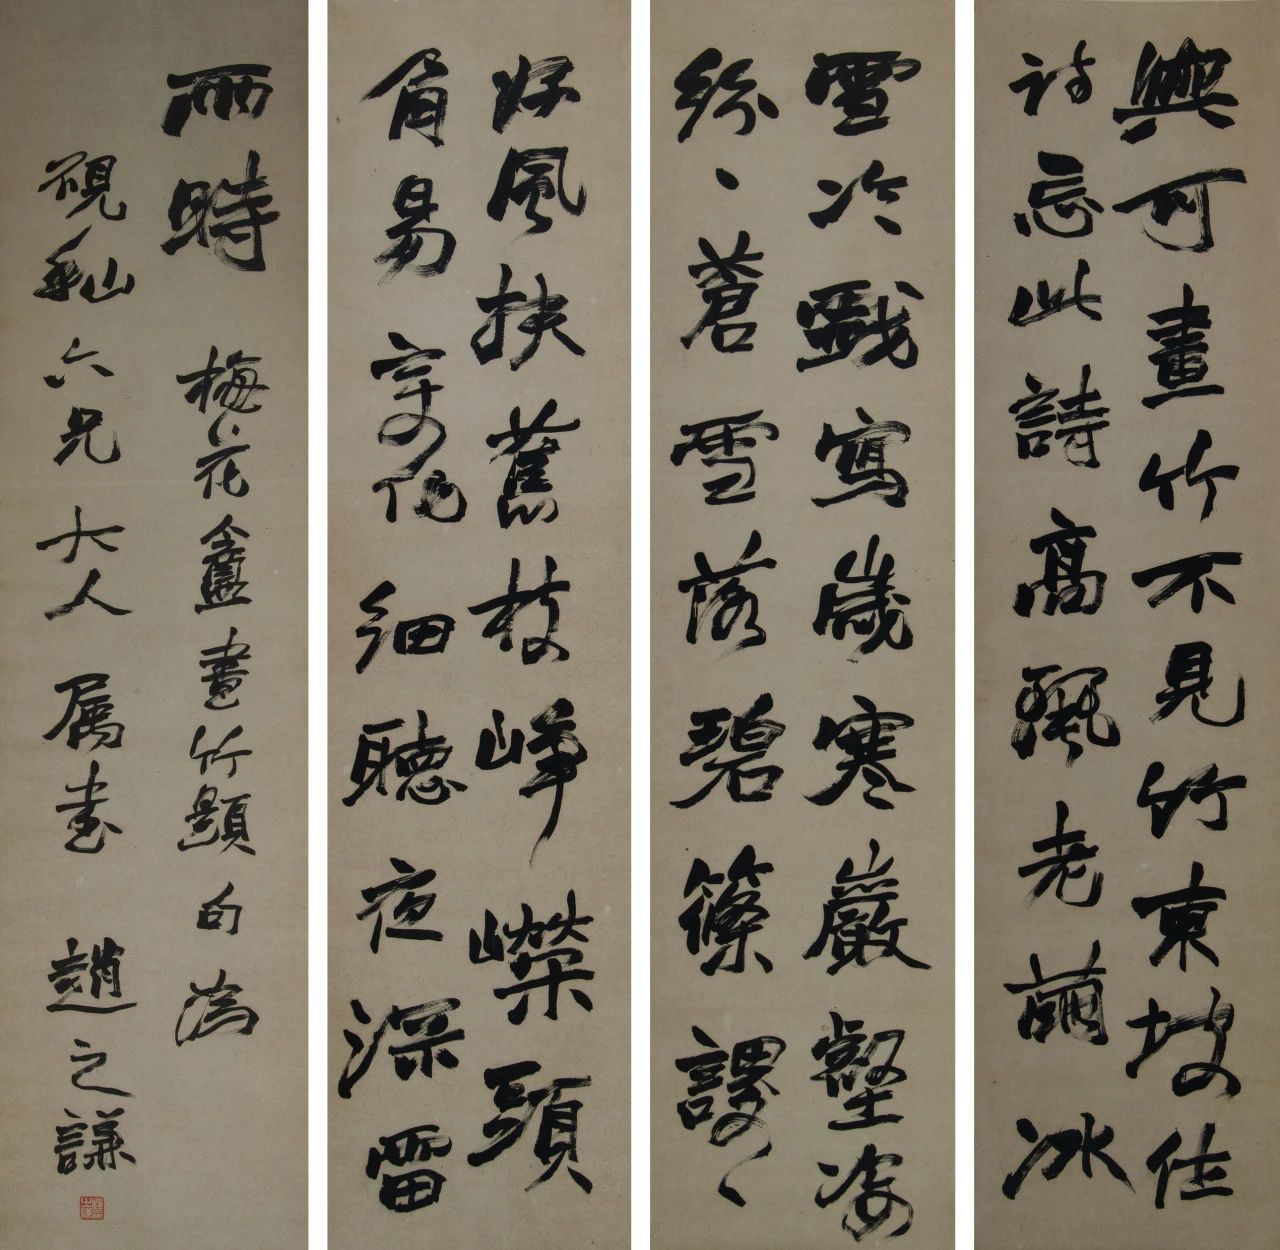 與可畫竹不見竹東坡作
詩忘此詩高麗老繭冰
雪冷戲寫歲寒巖壑姿
紛〻蒼雪落碧篠謖〻
好風扶舊枝崢嶸頭
角易变化細聽夜深雷
雨時 梅花盦畫竹題句為
硯秈六兄大人屬書 趙之謙